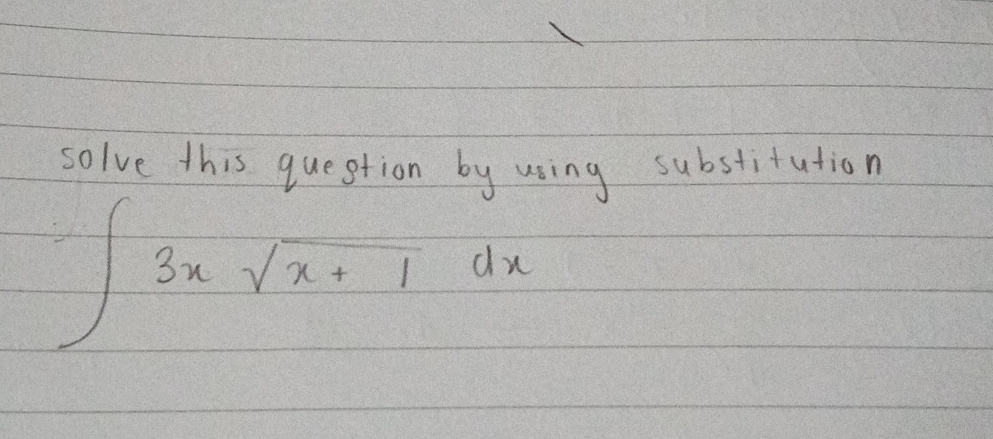 solve this question by using substitution
∫ 3x √(x + 1) dx